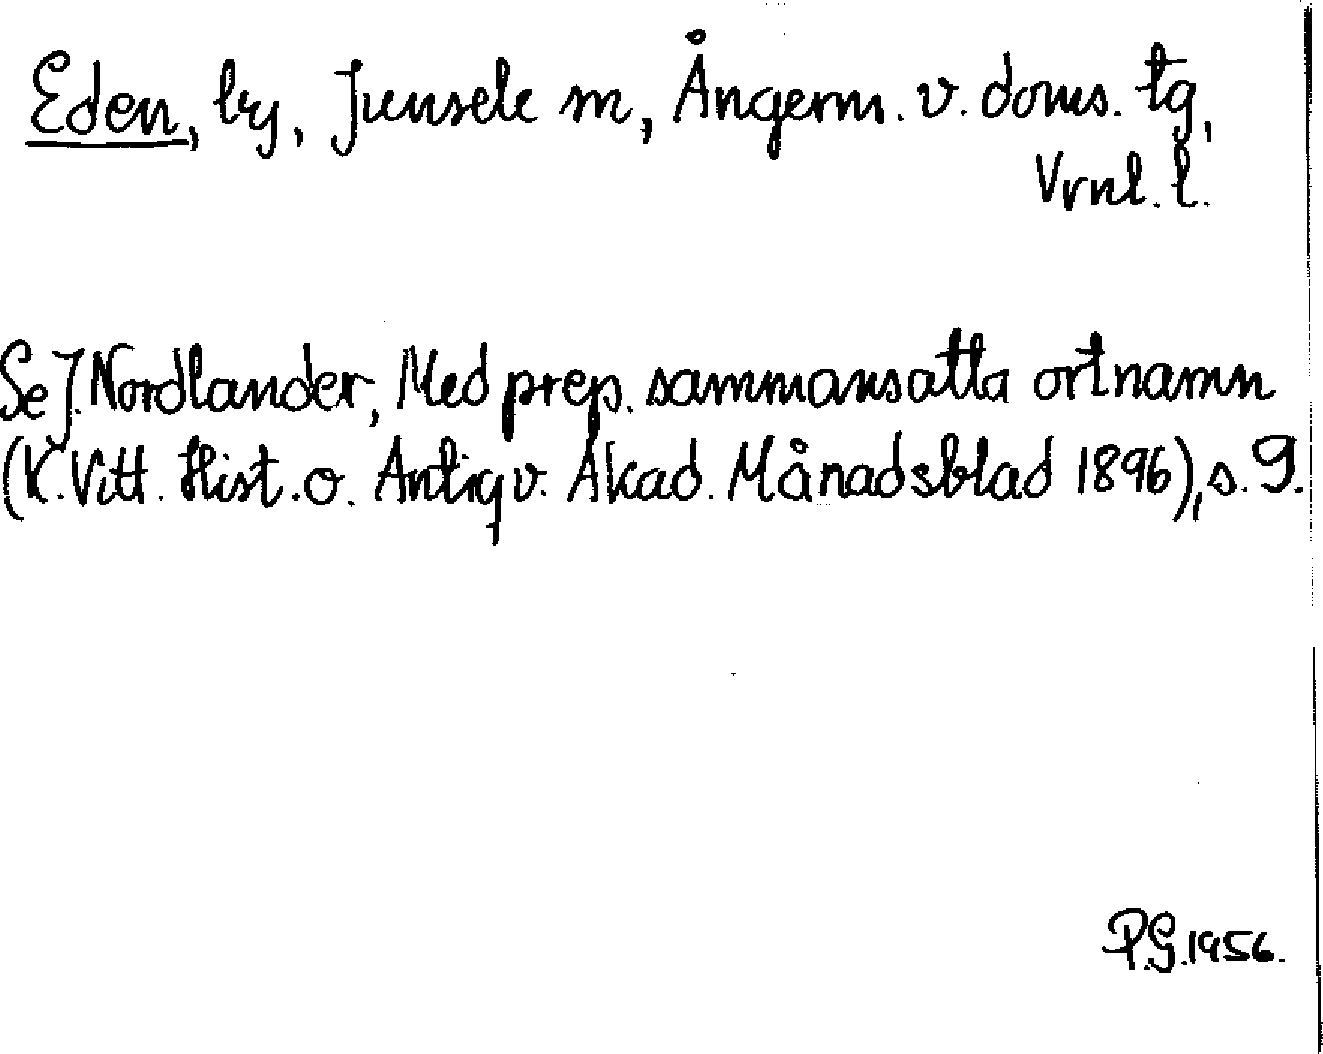 Eden, by, Junsele sn, Ångerm. v. doms. tg,
Vrnl. l.
Se J. Nordlander, Med prep. sammansatta ortnamn
(K. Vitt. Hist. o. Antiqv. Akad. Månadsblad 1896), s. 9.
P.G. 1956.